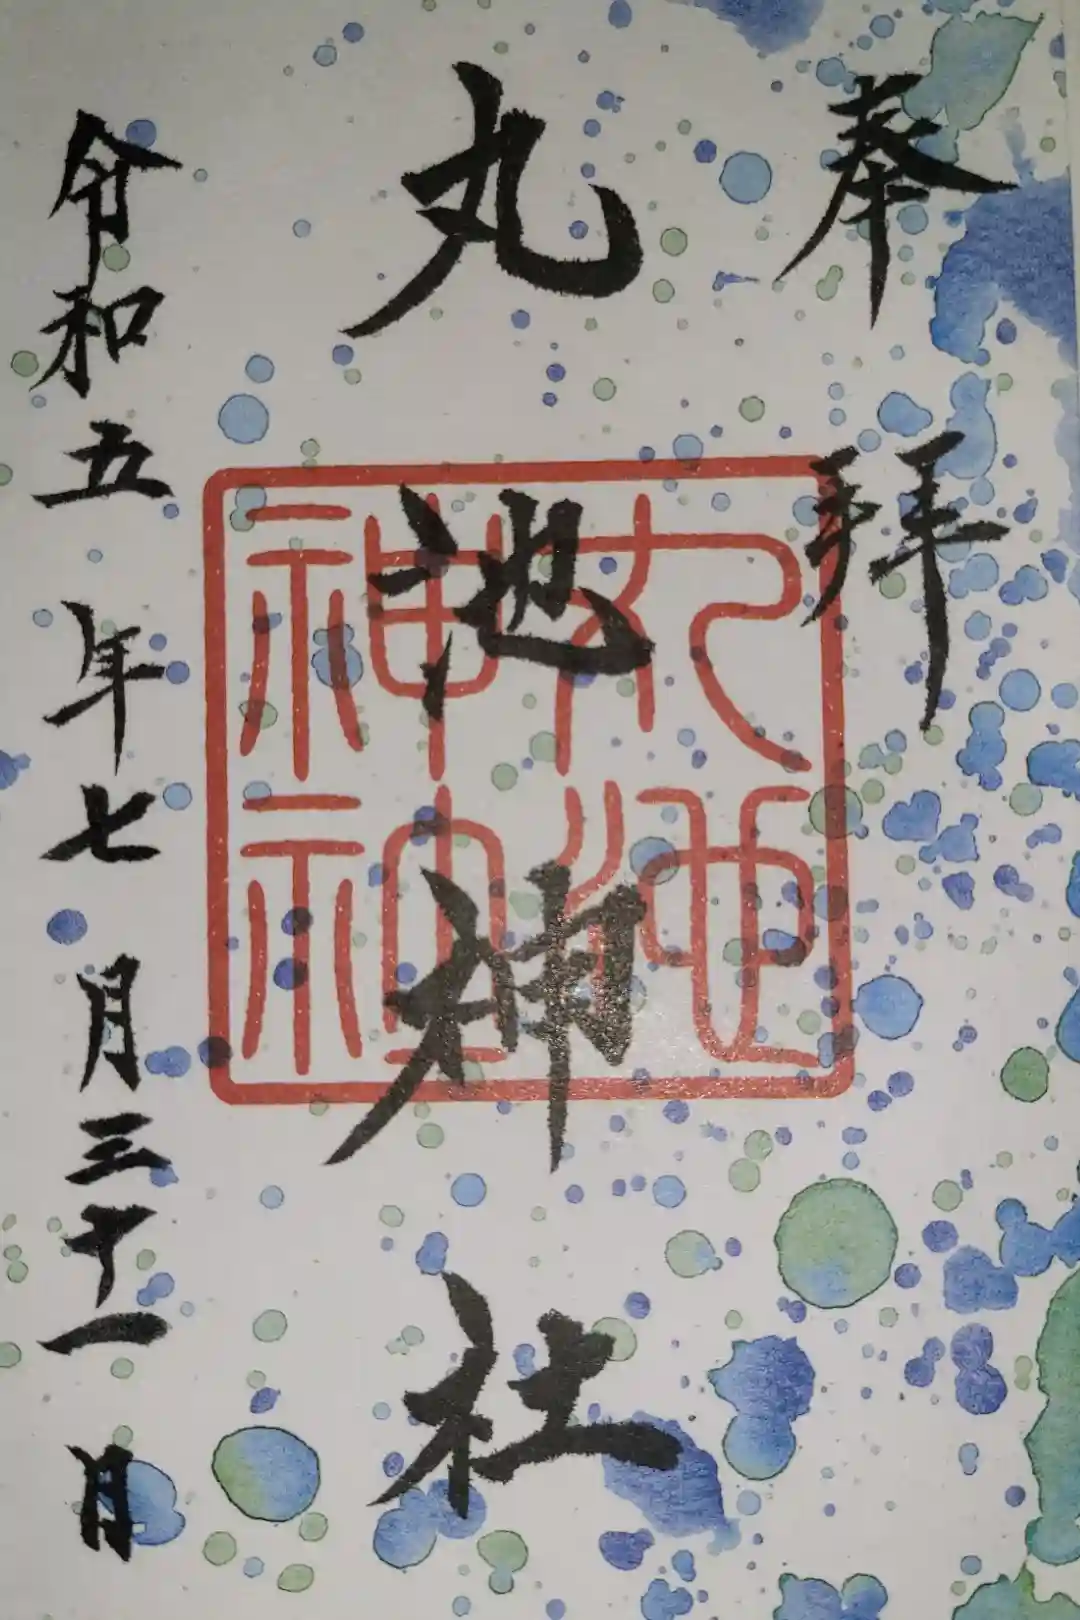 奉拝
丸池神社
丸池神社
令和五年七月三十一日